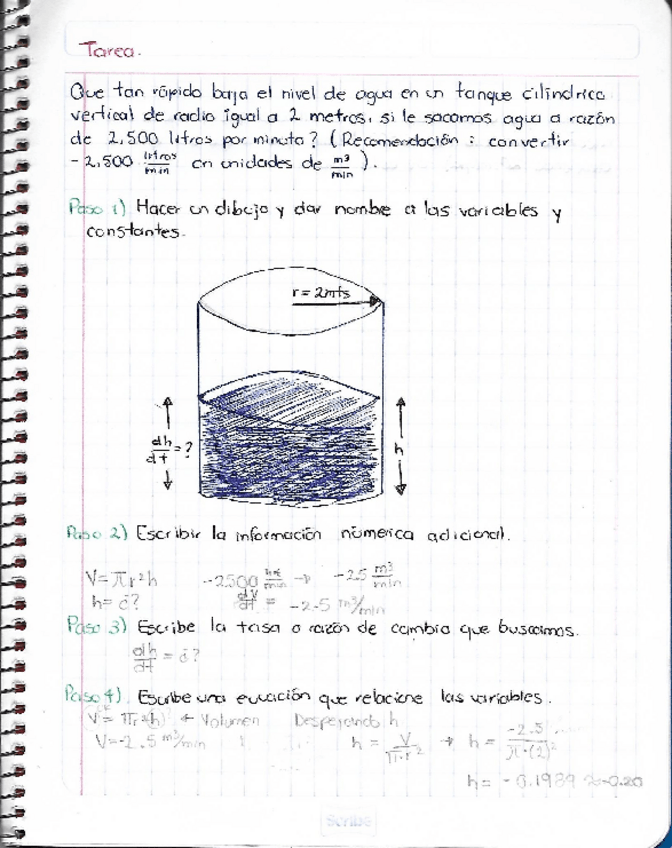 Tarea.
Que tan rápido baja el nivel de agua en un tanque cilíndrico
vertical de radio igual a 2 metros, si le sacamos agua a razón
de 2,500 litros por minuto? (Recomendación: convertir
-2,500 litros/min en unidades de m³/min).
Paso 1) Hacer un dibujo y dar nombre a las variables y
constantes.
r = 2mts
dh/dt = ?
h
Paso 2) Escribir la información númerica adicional.
V = πr²h -2500 lit/min → -2.5 m³/min
h = ¿? dV/dt = -2.5 m³/min
Paso 3) Escribe la tasa o razón de cambio que buscamos.
dh/dt = ¿?
Paso 4) Escribe una ecuación que relacione las variables.
V = πr²(h) ← Volumen Despejando h
V = -2.5 m³/min h = V/π·r² → h = -2.5/π·(2)²
h = -0.1989 ≈ -0.20
Scribe